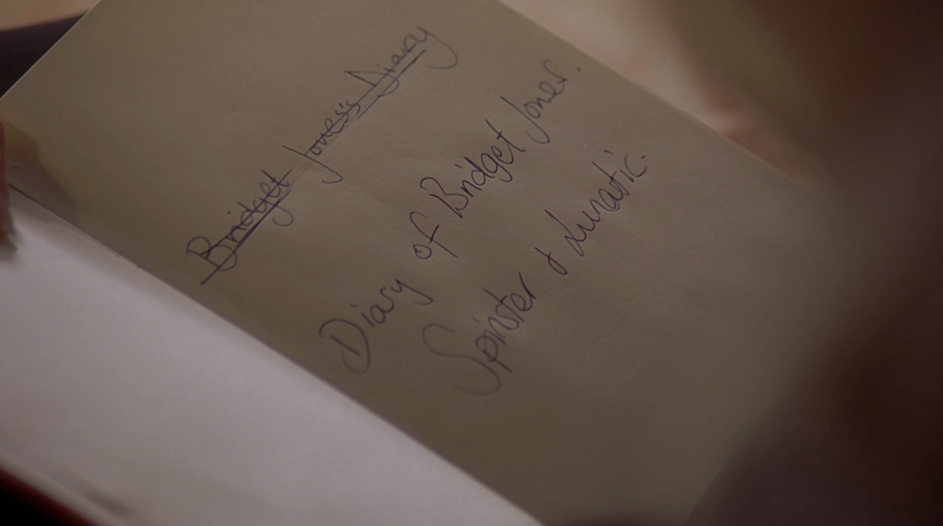 Bridget Jones's Diary
Diary of Bridget Jones.
Spinster & Lunatic.